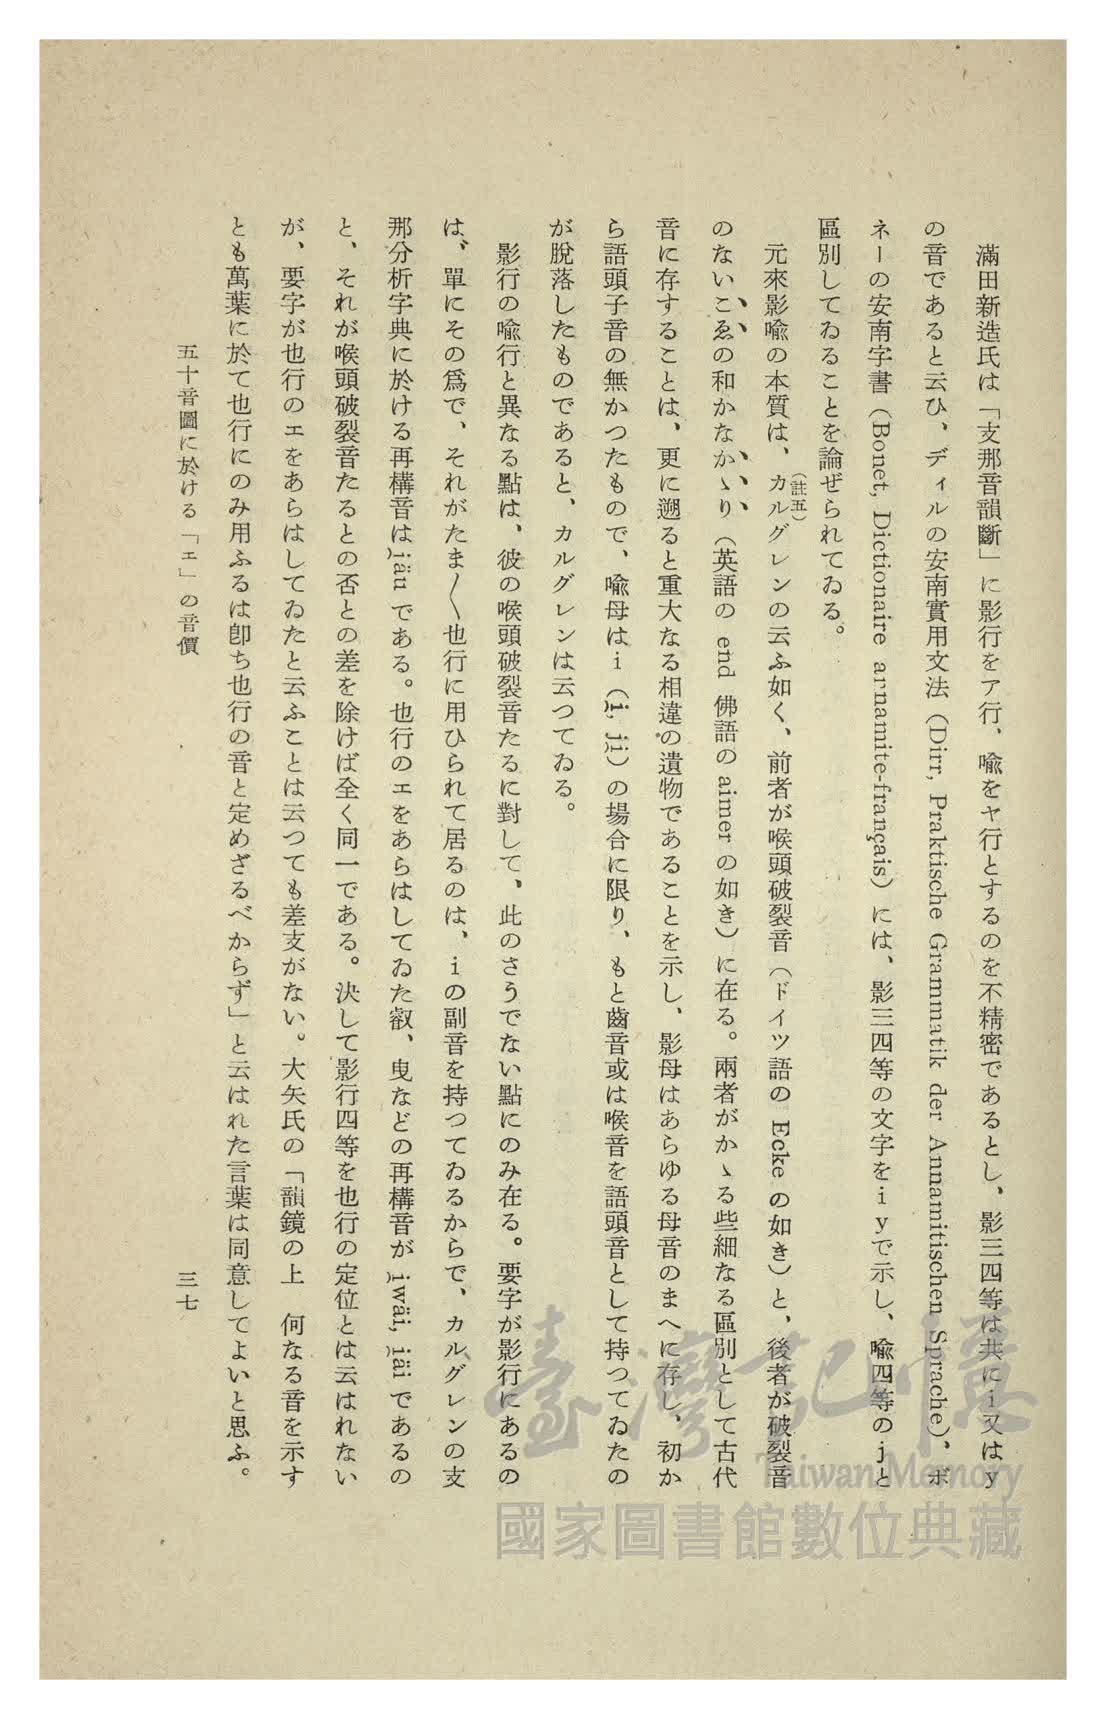 滿田新造氏は「支那音韻斷」に影行をア行、喩をヤ行とするのを不精密であるとし、影三四等は共にi又はy
の音であると云ひ、ディルの安南實用文法（Dirr, Praktische Grammatik der Annamitischen Sprache）、ボ
ネーの安南字書（Bonet, Dictionaire arnamite-français）には、影三四等の文字をiyで示し、喩四等のjと
區別してゐることを論ぜられてゐる。
元來影喩の本質は、カルグレンの云ふ如く、前者が喉頭破裂音（ドイツ語の Ecke の如き）と、後者が破裂音
（註五）
のないこゑの和かなかゝり（英語の end 佛語の aimer の如き）に在る。兩者がかゝる些細なる區別として古代
音に存することは、更に遡ると重大なる相違の遺物であることを示し、影母はあらゆる母音のまへに存し、初か
ら語頭子音の無かつたもので、喩母はi（i̯, ji̯）の場合に限り、もと齒音或は喉音を語頭音として持つてゐたの
が脫落したものであると、カルグレンは云つてゐる。
影行の喩行と異なる點は、彼の喉頭破裂音たるに對して、此のさうでない點にのみ在る。要字が影行にあるの
は、單にその爲で、それがたま〳〵也行に用ひられて居るのは、iの副音を持つてゐるからで、カルグレンの支
那分析字典に於ける再構音は i̯äu である。也行のエをあらはしてゐた叡、曳などの再構音が i̯wäi, i̯äi であるの
と、それが喉頭破裂音たるとの否との差を除けば全く同一である。決して影行四等を也行の定位とは云はれない
が、要字が也行のエをあらはしてゐたと云ふことは云つても差支がない。大矢氏の「韻鏡の上　何なる音を示す
とも萬葉に於て也行にのみ用ふるは卽ち也行の音と定めざるべからず」と云はれた言葉は同意してよいと思ふ。
五十音圖に於ける「エ」の音價
三七
臺灣記憶
Taiwan Memory
國家圖書館數位典藏